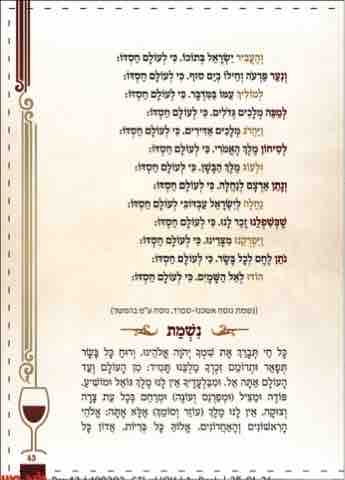 וְהֶעֱבִיר יִשְׂרָאֵל בְּתוֹכוֹ, כִּי לְעוֹלָם חַסְדּוֹ:
וְנִעֵר פַּרְעֹה וְחֵילוֹ בְיַם סוּף, כִּי לְעוֹלָם חַסְדּוֹ:
לְמוֹלִיךְ עַמּוֹ בַּמִּדְבָּר, כִּי לְעוֹלָם חַסְדּוֹ:
לְמַכֵּה מְלָכִים גְּדֹלִים, כִּי לְעוֹלָם חַסְדּוֹ:
וַיַּהֲרֹג מְלָכִים אַדִּירִים, כִּי לְעוֹלָם חַסְדּוֹ:
לְסִיחוֹן מֶלֶךְ הָאֱמֹרִי, כִּי לְעוֹלָם חַסְדּוֹ:
וּלְעוֹג מֶלֶךְ הַבָּשָׁן, כִּי לְעוֹלָם חַסְדּוֹ:
וְנָתַן אַרְצָם לְנַחֲלָה, כִּי לְעוֹלָם חַסְדּוֹ:
נַחֲלָה לְיִשְׂרָאֵל עַבְדּוֹ, כִּי לְעוֹלָם חַסְדּוֹ:
שֶׁבְּשִׁפְלֵנוּ זָכַר לָנוּ, כִּי לְעוֹלָם חַסְדּוֹ:
וַיִּפְרְקֵנוּ מִצָּרֵינוּ, כִּי לְעוֹלָם חַסְדּוֹ:
נֹתֵן לֶחֶם לְכָל בָּשָׂר, כִּי לְעוֹלָם חַסְדּוֹ:
הוֹדוּ לְאֵל הַשָּׁמָיִם, כִּי לְעוֹלָם חַסְדּוֹ:
(נשמת נוסח אשכנז-ספרד, נוסח ע"מ בהמשך)
נִשְׁמַת
כָּל חַי תְּבָרֵךְ אֶת שִׁמְךָ יְקֹוָק אֱלֹהֵינוּ, וְרוּחַ כָּל בָּשָׂר
תְּפָאֵר וּתְרוֹמֵם זִכְרְךָ מַלְכֵּנוּ תָּמִיד: מִן הָעוֹלָם וְעַד
הָעוֹלָם אַתָּה אֵל, וּמִבַּלְעָדֶיךָ אֵין לָנוּ מֶלֶךְ גּוֹאֵל וּמוֹשִׁיעַ,
פּוֹדֶה וּמַצִּיל (וּמְפַרְנֵס וְעוֹנֶה) וּמְרַחֵם בְּכָל עֵת צָרָה
וְצוּקָה, אֵין לָנוּ מֶלֶךְ (עוֹזֵר וְסוֹמֵךְ) אֶלָּא אָתָּה: אֱלֹהֵי
הָרִאשׁוֹנִים וְהָאַחֲרוֹנִים, אֱלוֹהַּ כָּל בְּרִיּוֹת, אֲדוֹן כָּל
43